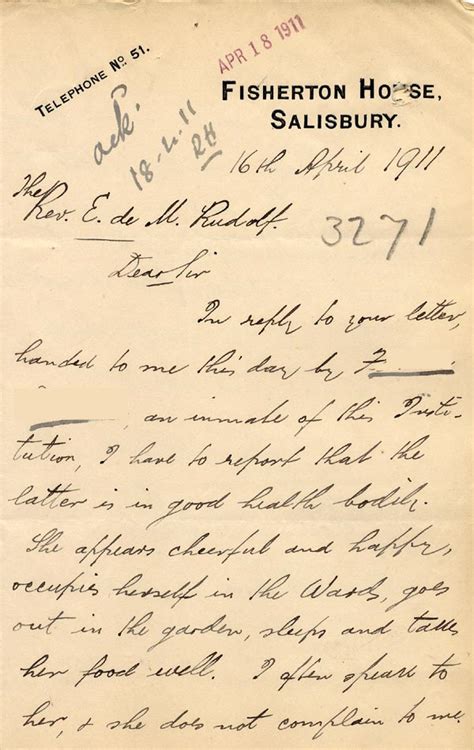 APR 18 1911
TELEPHONE No. 51.
FISHERTON HOUSE,
SALISBURY.
ack.
18-4-11
RH
16th April 1911
The
Rev. E. de M. Rudolf.
3271
Dear Sir
In reply to your letter,
handed to me this day by F
, an inmate of this Insti-
tution, I have to report that the
latter is in good health bodily.
She appears cheerful and happy,
occupies herself in the Wards, goes
out in the garden, sleeps and takes
her food well. I often speak to
her, & she does not complain to me